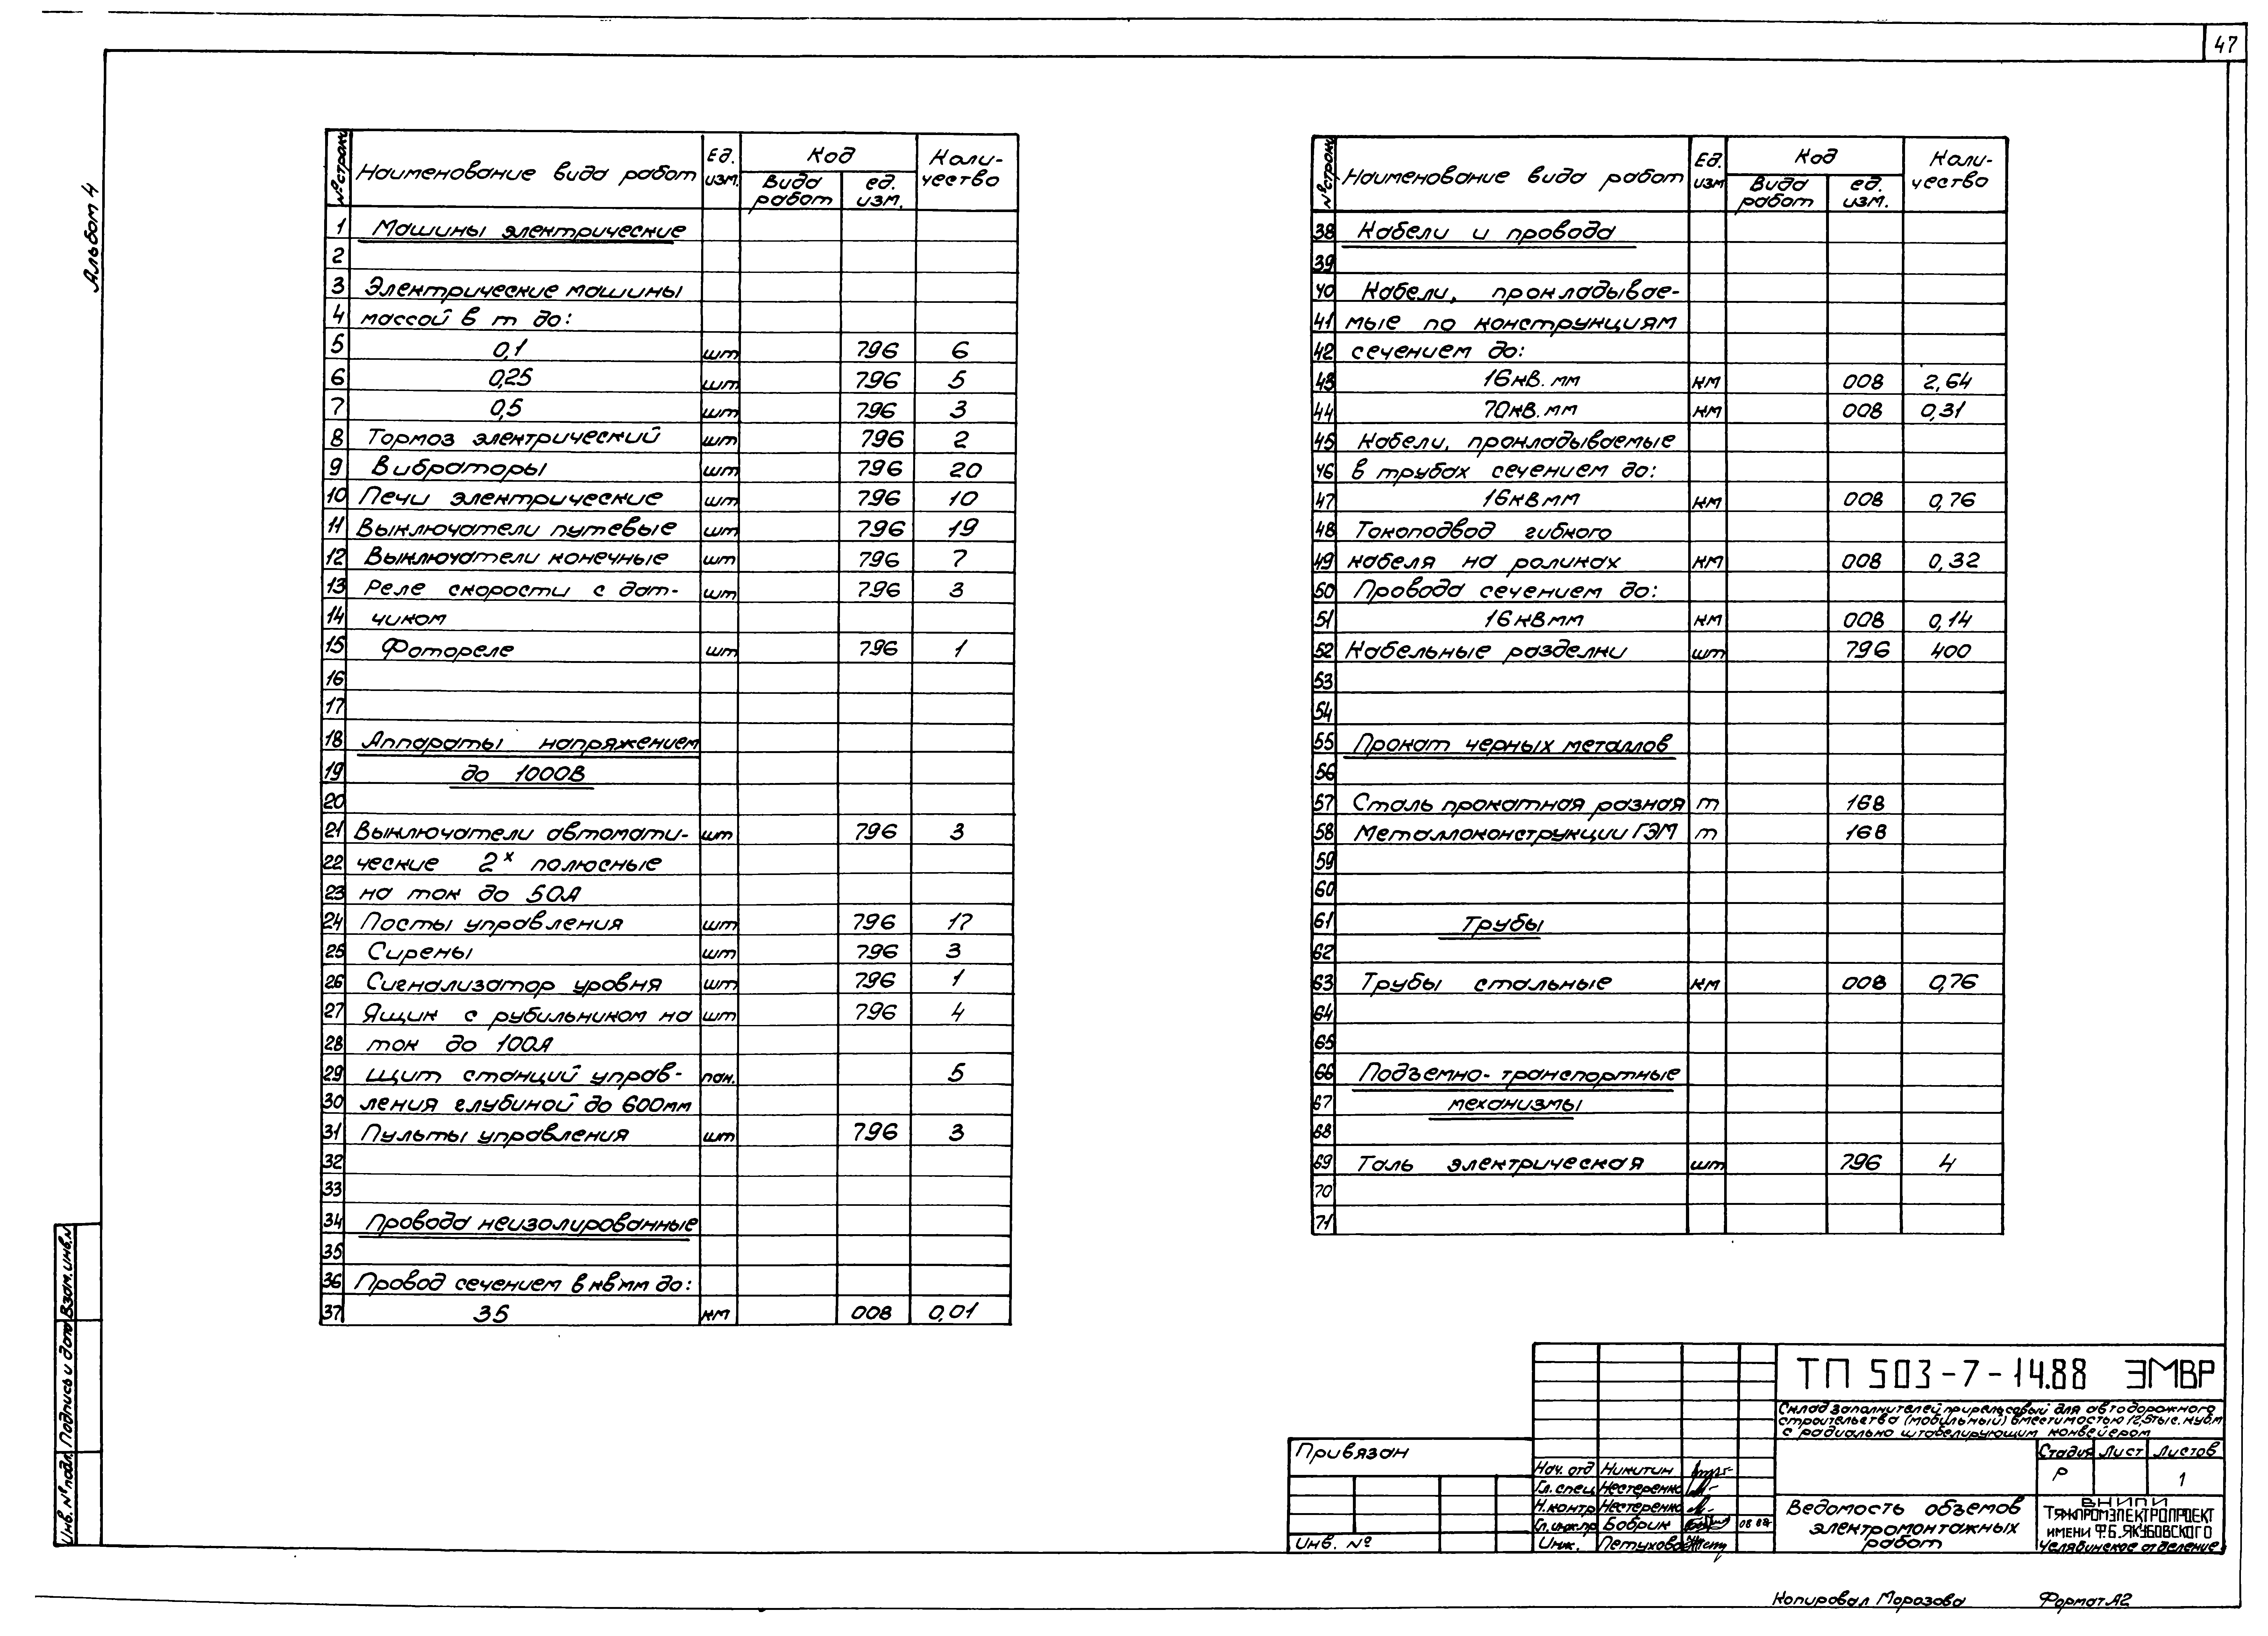 47
Альбом 4
№ строки Наименование вида работ Ед. изм. Код Вида работ ед. изм. Количество
1 Машины электрические
2
3 Электрические машины
4 массой в т до:
5 0,1 шт 796 6
6 0,25 шт 796 5
7 0,5 шт 796 3
8 Тормоз электрический шт 796 2
9 Вибраторы шт 796 20
10 Печи электрические шт 796 10
11 Выключатели путевые шт 796 19
12 Выключатели конечные шт 796 7
13 Реле скорости с дат- шт 796 3
14 чиком
15 Фотореле шт 796 1
16
17
18 Аппараты напряжением
19 до 1000В
20
21 Выключатели автомати- шт 796 3
22 ческие 2х полюсные
23 на ток до 50А
24 Посты управления шт 796 17
25 Сирены шт 796 3
26 Сигнализатор уровня шт 796 1
27 Ящик с рубильником на шт 796 4
28 ток до 100А
29 Щит станций управ- пан. 5
30 ления глубиной до 600мм
31 Пульты управления шт 796 3
32
33
34 Провода неизолированные
35
36 Провод сечением в кв мм до:
37 35 км 008 0,01
№ строки Наименование вида работ Ед. изм Код Вида работ ед. изм. Количество
38 Кабели и провода
39
40 Кабели, прокладывае-
41 мые по конструкциям
42 сечением до:
43 16кв.мм км 008 2,64
44 70кв.мм км 008 0,31
45 Кабели, прокладываемые
46 в трубах сечением до:
47 16кв мм км 008 0,76
48 Токоподвод гибкого
49 кабеля на роликах км 008 0,32
50 Провода сечением до:
51 16кв мм км 008 0,14
52 Кабельные разделки шт 796 400
53
54
55 Прокат черных металлов
56
57 Сталь прокатная разная т 168
58 Металлоконструкции ГЭМ т 168
59
60
61 Трубы
62
63 Трубы стальные км 008 0,76
64
65
66 Подъемно-транспортные
67 механизмы
68
69 Таль электрическая шт 796 4
70
71
Инв. № подл. Подпись и дата Взам. инв. №
Привязан
Инв. №
Нач. отд Никитин
Гл. спец Нестеренко
Н. контр Нестеренко
Гл. инж. пр Бобрик 08 88
Инж. Петухова
ТП 503-7-14.88 ЭМВР
Склад заполнителей прирельсовый для автодорожного
строительства (мобильный) вместимостью 12,5тыс. куб.м
с радиально штабелирующим конвейером
Стадия Лист Листов
Р 1
Ведомость объемов
электромонтажных
работ
ВНИПИ
ТЯЖПРОМЭЛЕКТРОПРОЕКТ
ИМЕНИ Ф.Б. ЯКУБОВСКОГО
Челябинское отделение
Копировал Морозова Формат А2